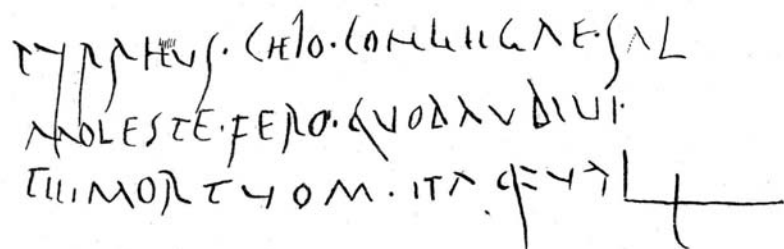 PYRRHVS·CHEIO·CONLEGAE·SAL
MOLESTE·FERO·QVOD AVDIVI·
TE MORTVOM·ITAQ·VAL